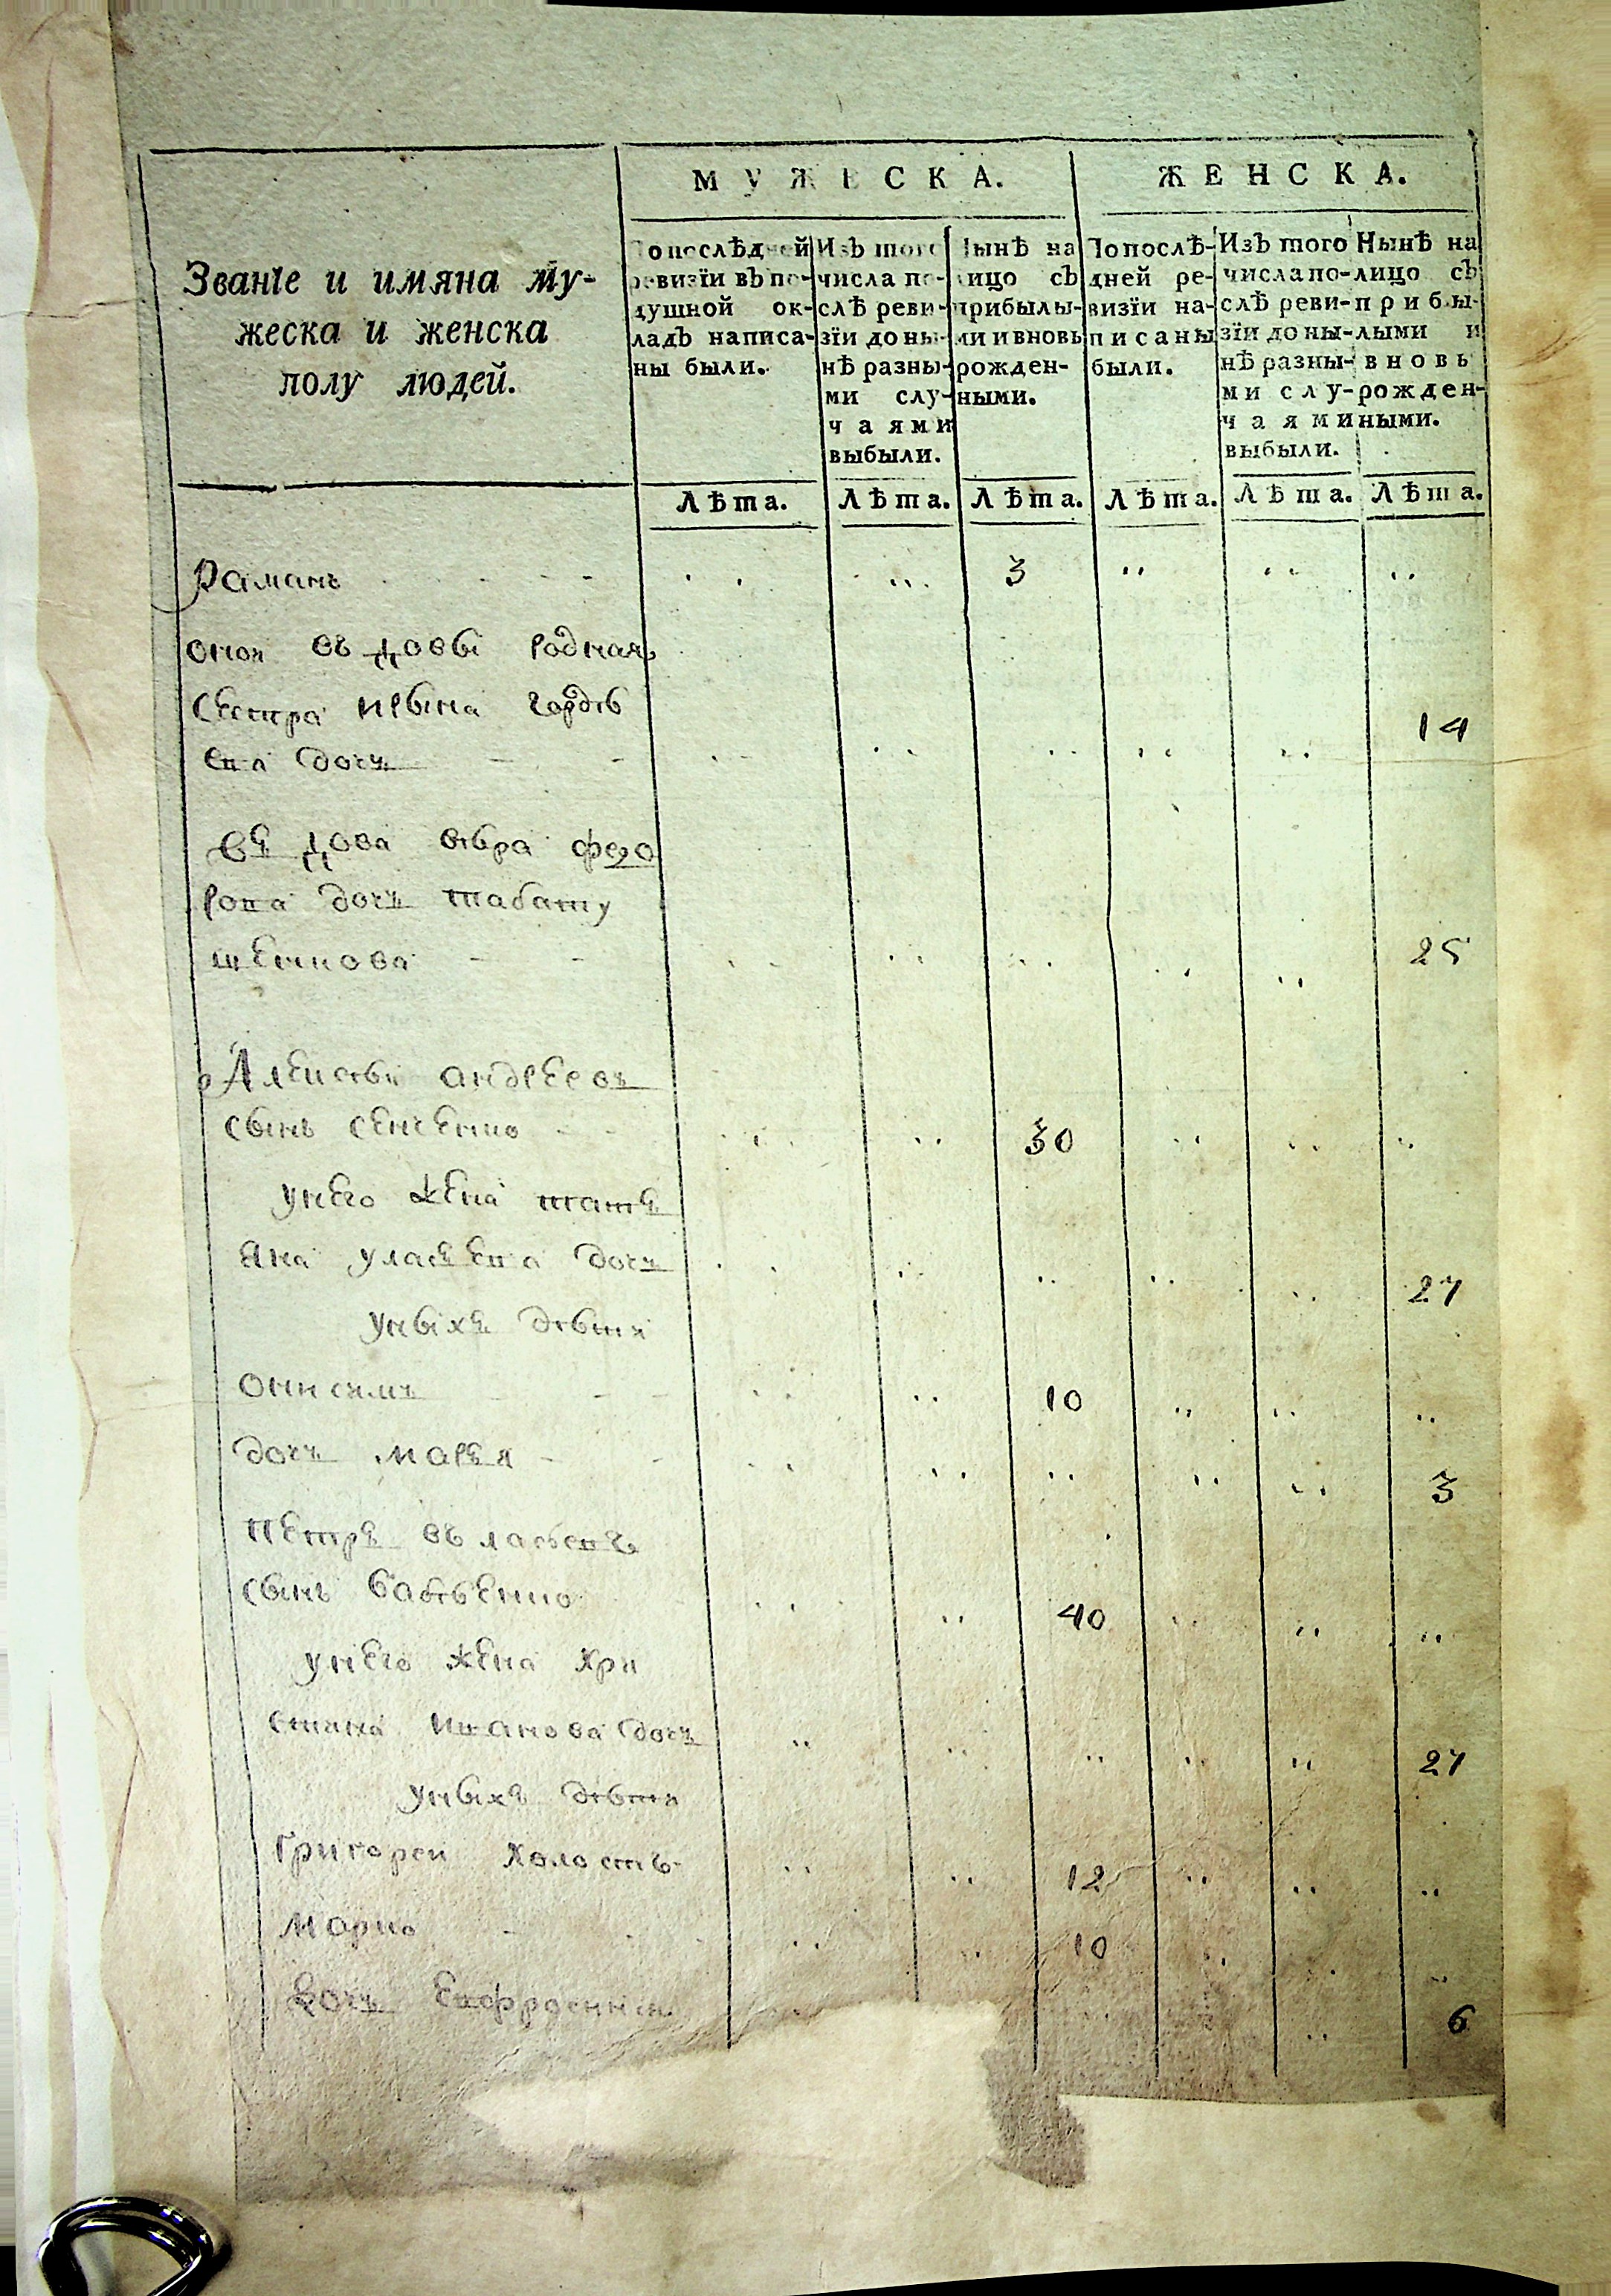 МУЖЕСКА. ЖЕНСКА.
Званїе и имяна му-
жеска и женска
полу людей.
По послѣдней
ревизїи въ по-
душной ок-
ладъ написа-
ны были.
Изъ того
числа по-
слѣ реви-
зїи до ны-
нѣ разны-
ми слу-
чаями
выбыли.
Нынѣ на
лицо съ
прибылы-
ми и вновь
рожден-
ными.
По послѣ-
дней ре-
визїи на-
писаны
были.
Изъ того
числа по-
слѣ реви-
зїи до ны-
нѣ разны-
ми слу-
чаями
выбыли.
Нынѣ на
лицо съ
прибы-
лыми и
вновь
рожден-
ными.
Лѣта. Лѣта. Лѣта. Лѣта. Лѣта. Лѣта.
Раманъ 3
оной въдовы родная
сестра ирына гордѣ
ева дочь 14
вьдова вѣра
дочь
25
Алексѣй андреевъ
сынъ 30
унего жена татя
яна уласева дочь 27
уныхъ дѣти
Онисимъ 10
дочь маръя 3
петръ въласовъ
сынъ 40
унего жена хри
стина иванова дочь 27
уныхъ дѣти
Григорей холостъ 12
Марко 10
дочь Евфросиния 6